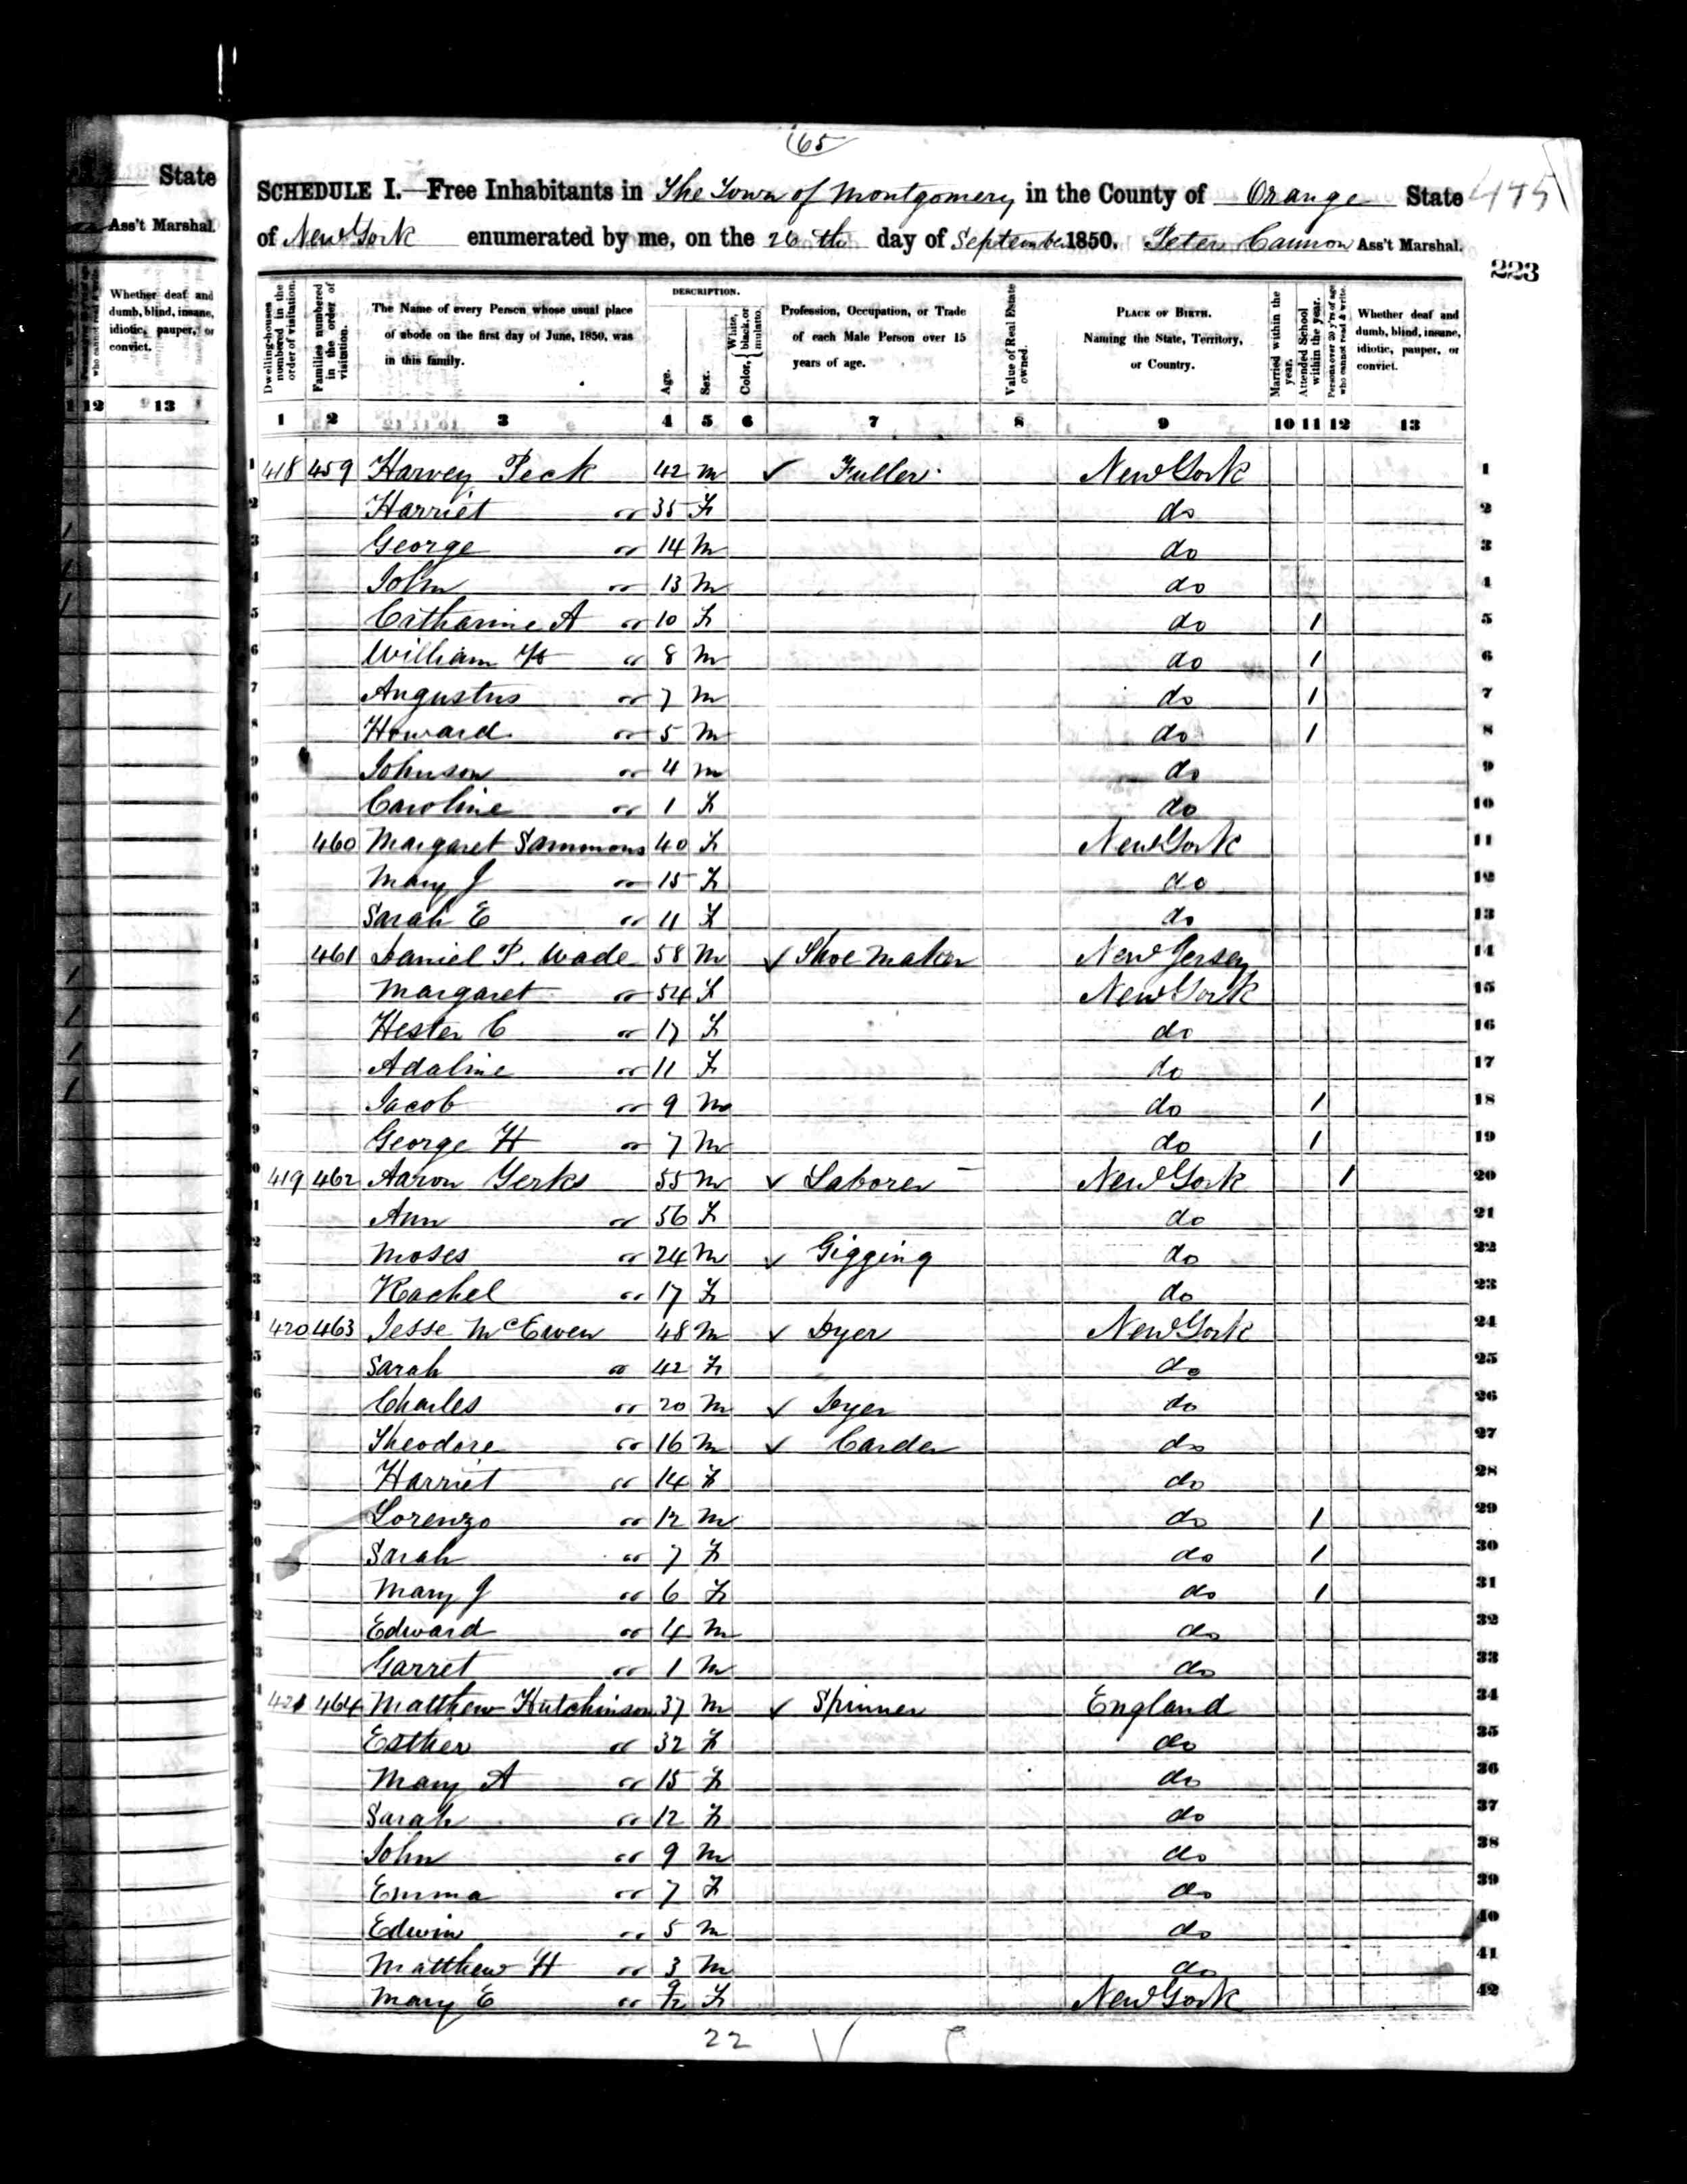 65
State
Ass't Marshal.
Whether deaf and dumb, blind, insane, idiotic, pauper, or convict.
12 13
SCHEDULE I.—Free Inhabitants in The Town of Montgomery in the County of Orange State
of New York enumerated by me, on the 26th day of September 1850. Peter Cannon Ass't Marshal.
223
Dwelling-houses numbered in the order of visitation.
Families numbered in the order of visitation.
The Name of every Person whose usual place of abode on the first day of June, 1850, was in this family.
DESCRIPTION.
Age.
Sex.
Color, White, black, or mulatto.
Profession, Occupation, or Trade of each Male Person over 15 years of age.
Value of Real Estate owned.
PLACE OF BIRTH. Naming the State, Territory, or Country.
Married within the year.
Attended School within the year.
Persons over 20 y'rs of age who cannot read & write.
Whether deaf and dumb, blind, insane, idiotic, pauper, or convict.
1 2 3 4 5 6 7 8 9 10 11 12 13
1 418 459 Harvey Peck 42 M ✓ Fuller New York 1
2 Harriet " 35 F do 2
3 George " 14 M do 3
4 John " 13 M do 4
5 Catharine A " 10 F do 1 5
6 William H " 8 M do 1 6
7 Augustus " 7 M do 1 7
8 Howard " 5 M do 1 8
9 Johnson " 4 M do 9
10 Caroline " 1 F do 10
11 460 Margaret Sammons 40 F New York 11
12 Mary J " 15 F do 12
13 Sarah E " 11 F do 13
14 461 Daniel P. Wade 58 M ✓ Shoe Maker New Jersey 14
15 Margaret " 54 F New York 15
16 Hester C " 17 F do 16
17 Adaline " 11 F do 17
18 Jacob " 9 M do 1 18
19 George H " 7 M do 1 19
20 419 462 Aaron Yerks 55 M ✓ Laborer New York 1 20
21 Ann " 56 F do 21
22 Moses " 24 M ✓ Gigging do 22
23 Rachel " 17 F do 23
24 420 463 Jesse McEwen 48 M ✓ Dyer New York 24
25 Sarah " 42 F do 25
26 Charles " 20 M ✓ Dyer do 26
27 Theodore " 16 M ✓ Carder do 27
28 Harriet " 14 F do 28
29 Lorenzo " 12 M do 1 29
30 Sarah " 7 F do 1 30
31 Mary J " 6 F do 1 31
32 Edward " 4 M do 32
33 Garret " 1 M do 33
34 421 464 Matthew Hutchinson 37 M ✓ Spinner England 34
35 Esther " 32 F do 35
36 Mary A " 15 F do 36
37 Sarah " 12 F do 37
38 John " 9 M do 38
39 Emma " 7 F do 39
40 Edwin " 5 M do 40
41 Matthew H " 3 M do 41
42 Mary E " 9/12 F New York 42
22